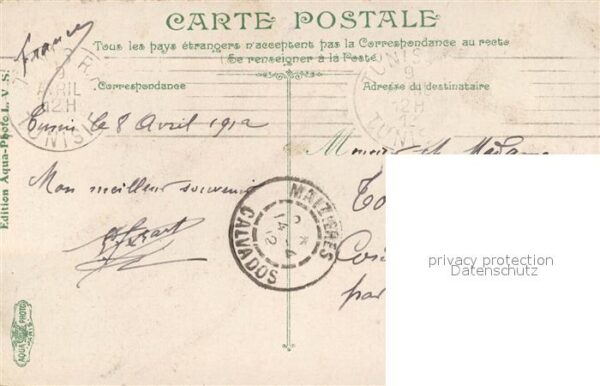 CARTE POSTALE
Tous les pays étrangers n'acceptent pas la Correspondance au recto
(Se renseigner à la Poste)
France
Correspondance
Adresse du destinataire
9
AVRIL
12H
TUNIS
TUNIS
9
12H
12
TUNIS
Tunis le 8 Avril 1912
Monsieur et Madame
Mon meilleur souvenir
par
MAIZIERES
CALVADOS
Edition Aqua-Photo L. V. S.
AQUA PHOTO
PARIS
privacy protection
Datenschutz